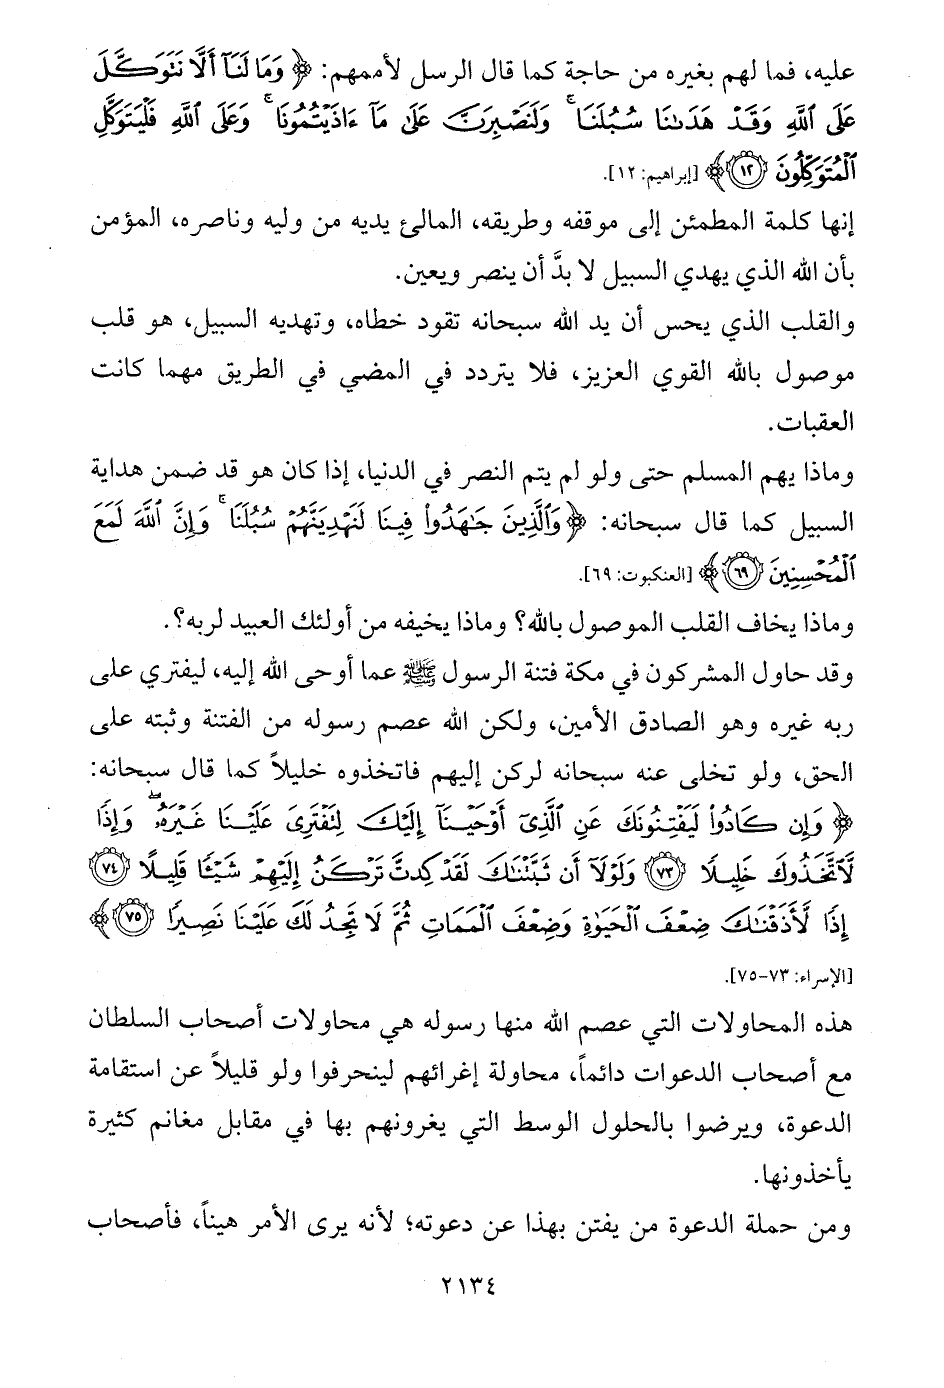 عليه، فما لهم بغيره من حاجة كما قال الرسل لأممهم: ﴿وَمَا لَنَآ أَلَّا نَتَوَكَّلَ
عَلَى ٱللَّهِ وَقَدْ هَدَىٰنَا سُبُلَنَا ۚ وَلَنَصْبِرَنَّ عَلَىٰ مَآ ءَاذَيْتُمُونَا ۚ وَعَلَى ٱللَّهِ فَلْيَتَوَكَّلِ
ٱلْمُتَوَكِّلُونَ ١٢﴾ [إبراهيم: ١٢].
إنها كلمة المطمئن إلى موقفه وطريقه، المالئ يديه من وليه وناصره، المؤمن
بأن الله الذي يهدي السبيل لا بدَّ أن ينصر ويعين.
والقلب الذي يحس أن يد الله سبحانه تقود خطاه، وتهديه السبيل، هو قلب
موصول بالله القوي العزيز، فلا يتردد في المضي في الطريق مهما كانت
العقبات.
وماذا يهم المسلم حتى ولو لم يتم النصر في الدنيا، إذا كان هو قد ضمن هداية
السبيل كما قال سبحانه: ﴿وَٱلَّذِينَ جَٰهَدُوا۟ فِينَا لَنَهْدِيَنَّهُمْ سُبُلَنَا ۚ وَإِنَّ ٱللَّهَ لَمَعَ
ٱلْمُحْسِنِينَ ٦٩﴾ [العنكبوت: ٦٩].
وماذا يخاف القلب الموصول بالله؟ وماذا يخيفه من أولئك العبيد لربه؟.
وقد حاول المشركون في مكة فتنة الرسول ﷺ عما أوحى الله إليه، ليفتري على
ربه غيره وهو الصادق الأمين، ولكن الله عصم رسوله من الفتنة وثبته على
الحق، ولو تخلى عنه سبحانه لركن إليهم فاتخذوه خليلاً كما قال سبحانه:
﴿وَإِن كَادُوا۟ لَيَفْتِنُونَكَ عَنِ ٱلَّذِىٓ أَوْحَيْنَآ إِلَيْكَ لِتَفْتَرِىَ عَلَيْنَا غَيْرَهُۥ ۖ وَإِذًا
لَّٱتَّخَذُوكَ خَلِيلًا ٧٣ وَلَوْلَآ أَن ثَبَّتْنَٰكَ لَقَدْ كِدتَّ تَرْكَنُ إِلَيْهِمْ شَيْـًٔا قَلِيلًا ٧٤
إِذًا لَّأَذَقْنَٰكَ ضِعْفَ ٱلْحَيَوٰةِ وَضِعْفَ ٱلْمَمَاتِ ثُمَّ لَا تَجِدُ لَكَ عَلَيْنَا نَصِيرًا ٧٥﴾
[الإسراء: ٧٣-٧٥].
هذه المحاولات التي عصم الله منها رسوله هي محاولات أصحاب السلطان
مع أصحاب الدعوات دائماً، محاولة إغرائهم لينحرفوا ولو قليلاً عن استقامة
الدعوة، ويرضوا بالحلول الوسط التي يغرونهم بها في مقابل مغانم كثيرة
يأخذونها.
ومن حملة الدعوة من يفتن بهذا عن دعوته؛ لأنه يرى الأمر هيناً، فأصحاب
٢١٣٤